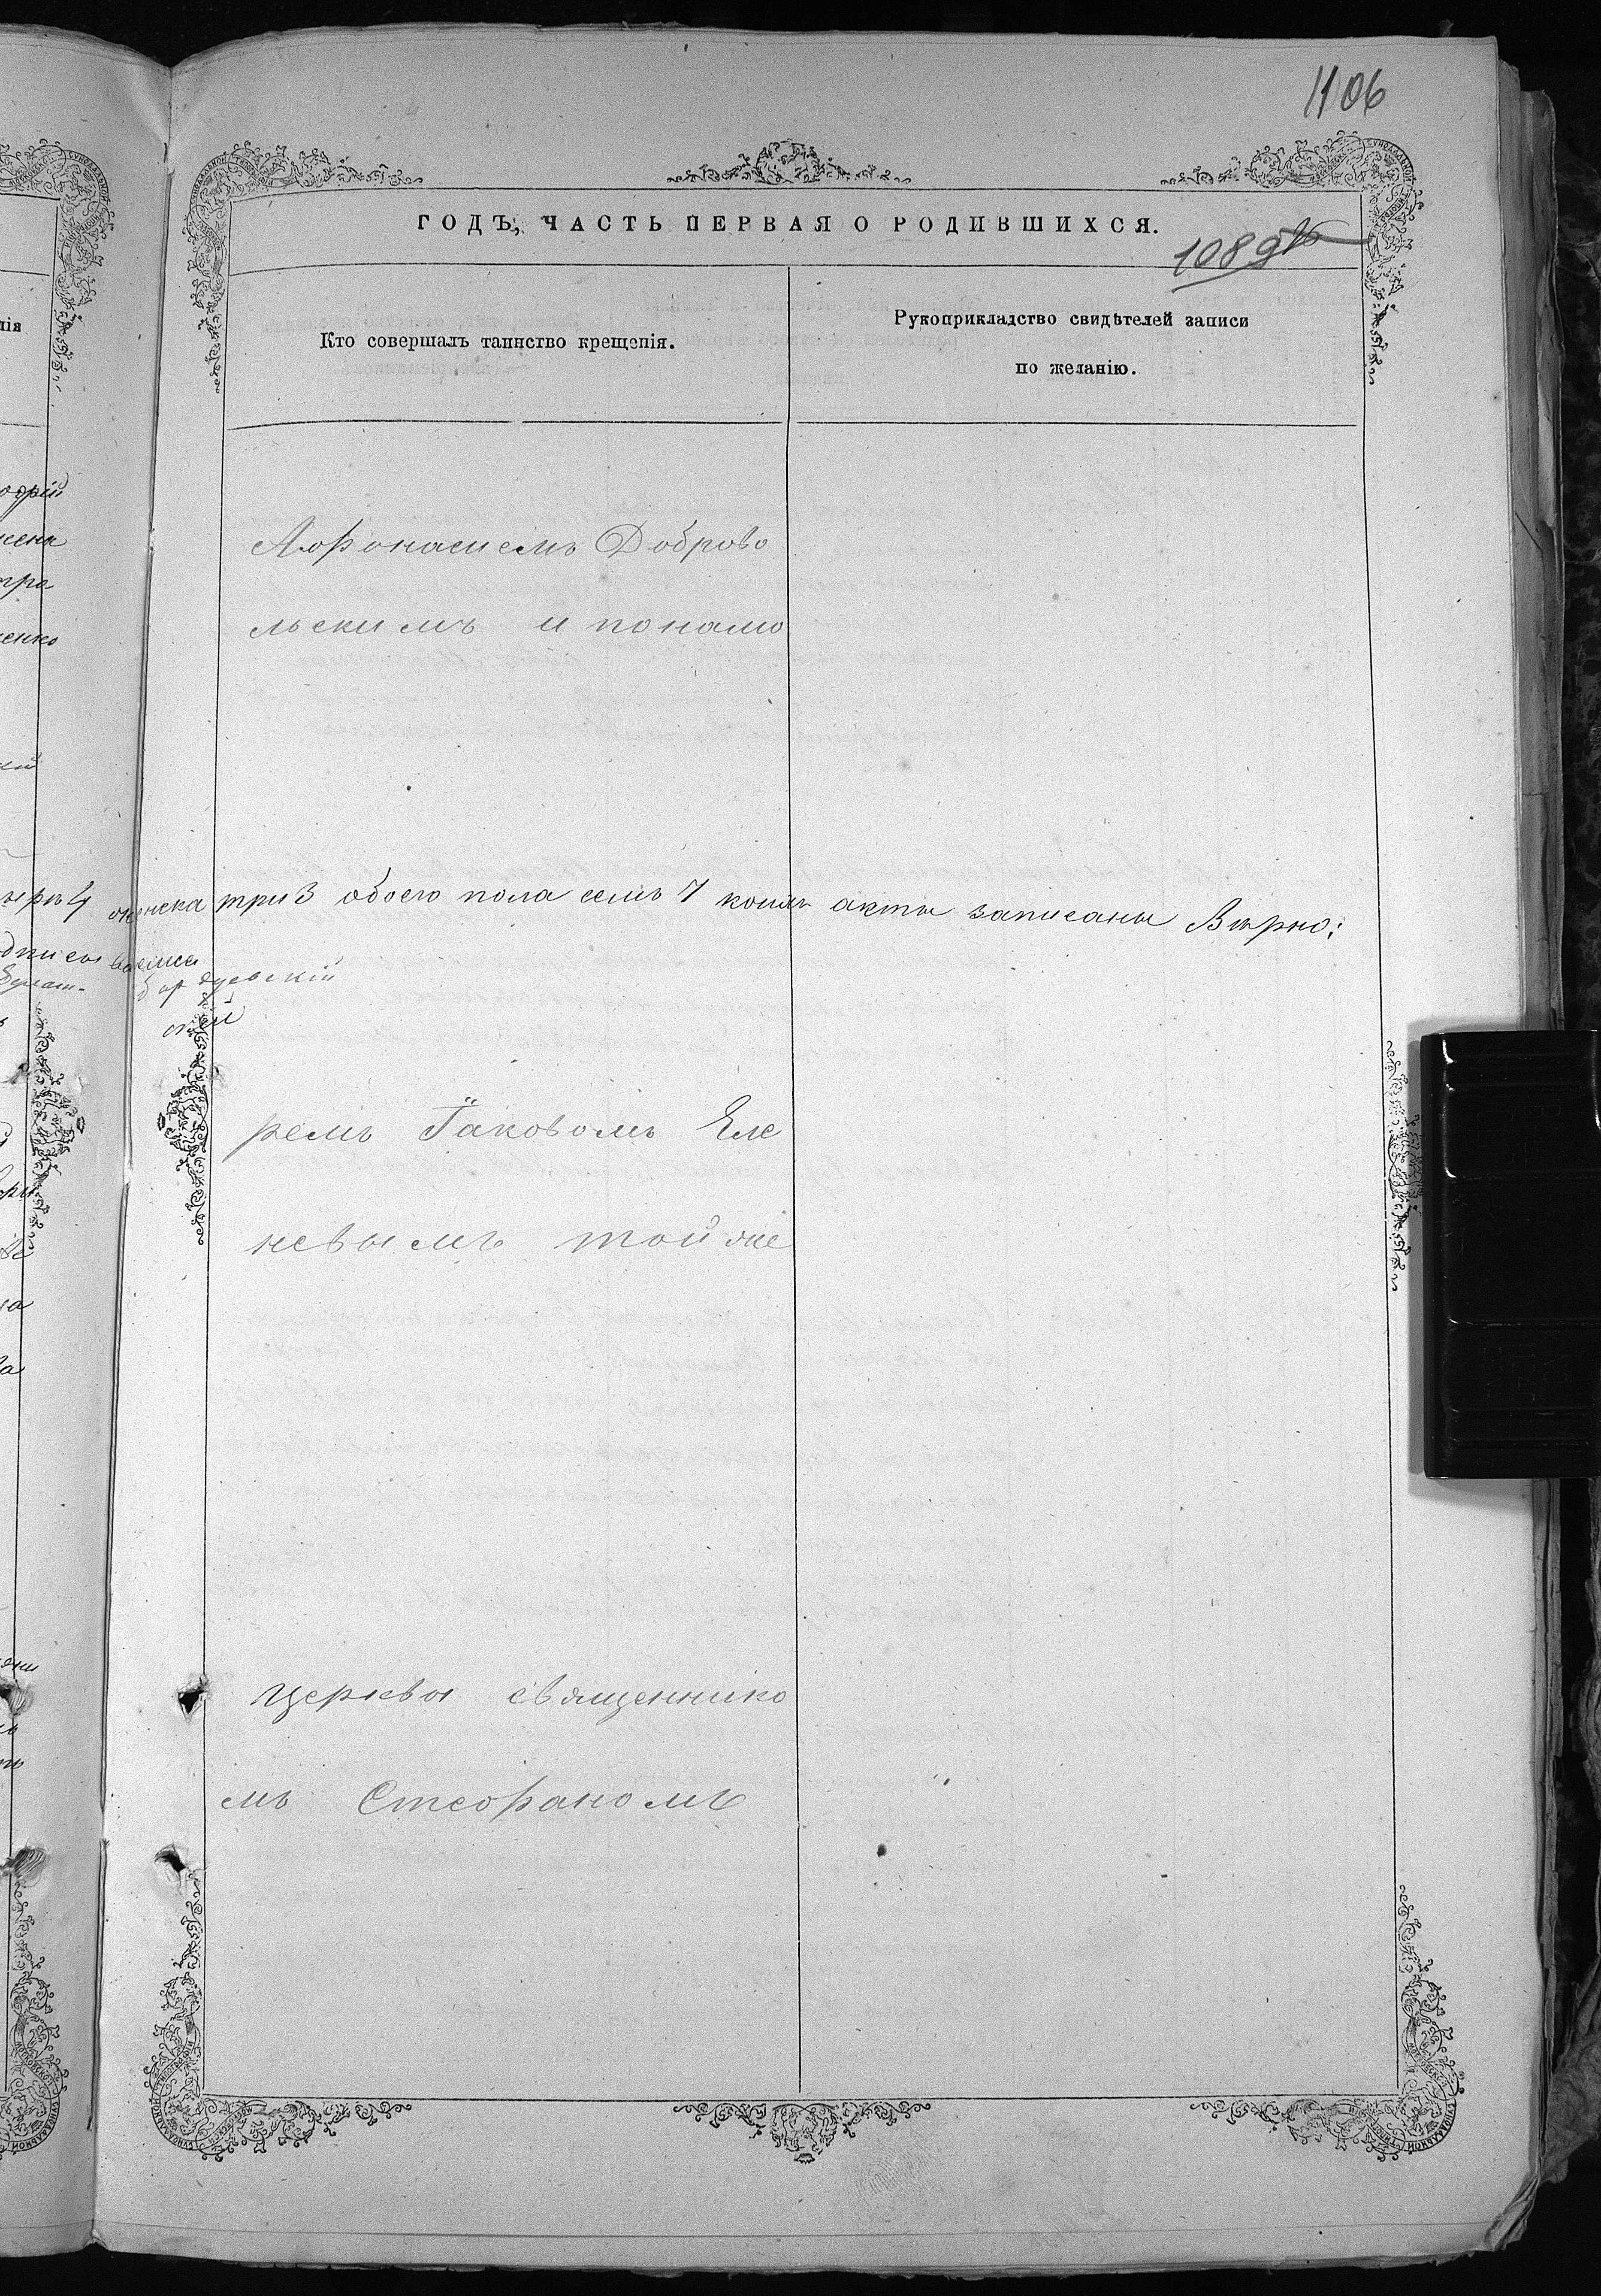 1106
ГОДЪ, ЧАСТЬ ПЕРВАЯ О РОДИВШИХСЯ.
1089
Кто совершалъ таинство крещенія.
Рукоприкладство свидѣтелей записи
по желанію.
Афонасиемъ Доброво
льскимъ и понамо
женска три 3 обоего пола семь 7 коихъ акты записаны Вѣрно:
ремъ Іаковомъ Еле
невымъ той же
Церквы священнико
мъ Стефаномъ